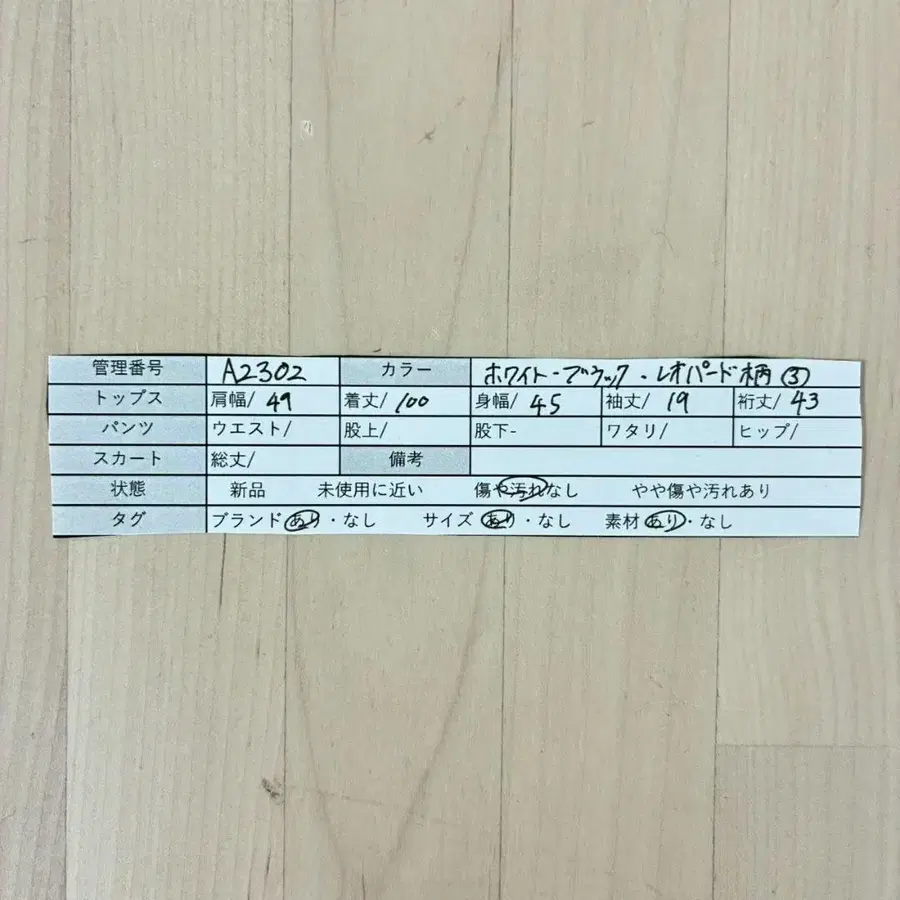 管理番号 A2302 カラー ホワイト・ブラック・レオパード柄 ③
トップス 肩幅/ 49 着丈/ 100 身幅/ 45 袖丈/ 19 裄丈/ 43
パンツ ウエスト/ 股上/ 股下- ワタリ/ ヒップ/
スカート 総丈/ 備考
状態 新品 未使用に近い 傷や汚れなし やや傷や汚れあり
タグ ブランド あり・なし サイズ あり・なし 素材 あり・なし